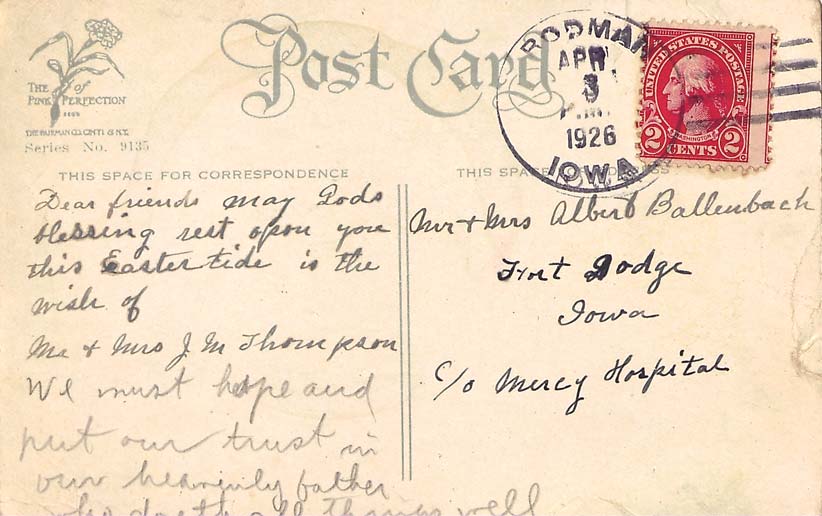 THE
of
PINK PERFECTION
THE FAIRMAN CO. CINTI & N.Y.
Series No. 9135
Post Card
RODMAN
APR
3
P.M.
1926
IOWA
UNITED STATES POSTAGE
WASHINGTON
2 CENTS 2
THIS SPACE FOR CORRESPONDENCE
THIS SPACE
Dear friends may Gods
blessing rest upon you
this Easter tide is the
wish of
Mr & Mrs J M Thompson
We must hope and
put our trust in
our heavenly father
who doeth all things well
Mr & Mrs Albert Ballenbach
Fort Dodge
Iowa
c/o Mercy Hospital